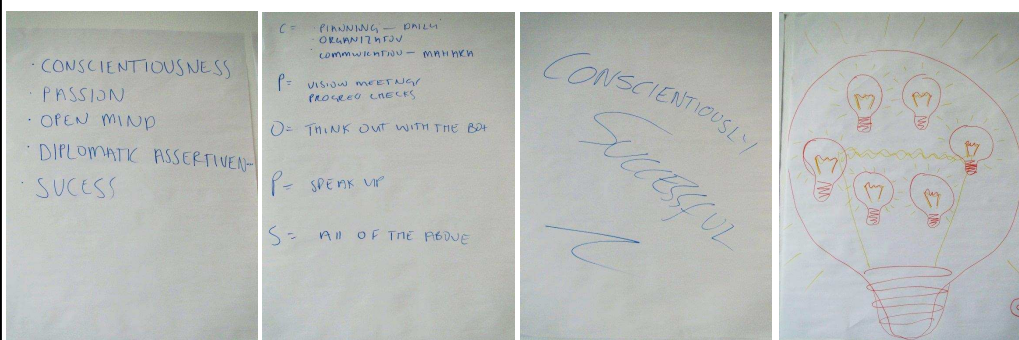 · CONSCIENTIOUSNESS
· PASSION
· OPEN MIND
· DIPLOMATIC ASSERTIVEN
· SUCESS
C = · PLANNING – DAILY
· ORGANIZATION
· COMMUNICATION – MAHARA
P = VISION MEETINGS
PROGRESS CHECKS
O = THINK OUT WITH THE BOX
P = SPEAK UP
S = All OF THE ABOVE
CONSCIENTIOUSLY
SUCCESSFUL